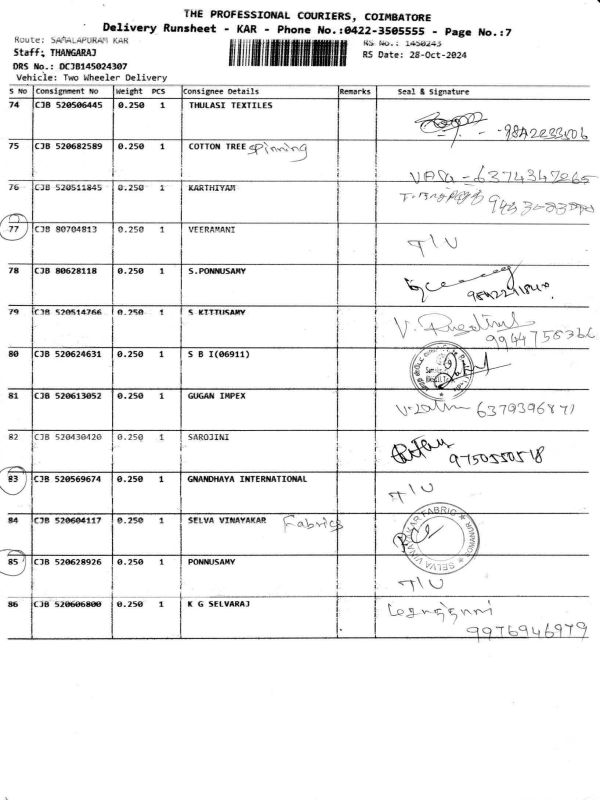 THE PROFESSIONAL COURIERS, COIMBATORE
Delivery Runsheet - KAR - Phone No.:0422-3505555 - Page No.:7
Route: SAMALAPURAM KAR
RS No.: 1450243
Staff: THANGARAJ
RS Date: 28-Oct-2024
DRS No.: DCJB145024307
Vehicle: Two Wheeler Delivery
S No Consignment No Weight PCS Consignee Details Remarks Seal & Signature
74 CJB 520506445 0.250 1 THULASI TEXTILES
75 CJB 520682589 0.250 1 COTTON TREE Spinning
76 CJB 520511845 0.250 1 KARTHIYAM
77 CJB 80704813 0.250 1 VEERAMANI T/U
78 CJB 80628118 0.250 1 S.PONNUSAMY
79 CJB 520514766 0.250 1 S KITTUSAMY
80 CJB 520624631 0.250 1 S B I(06911)
81 CJB 520613052 0.250 1 GUGAN IMPEX
82 CJB 520430420 0.250 1 SAROJINI
83 CJB 520569674 0.250 1 GNANDHAYA INTERNATIONAL T/U
84 CJB 520604117 0.250 1 SELVA VINAYAKAR Fabrics
85 CJB 520628926 0.250 1 PONNUSAMY T/U
86 CJB 520606800 0.250 1 K G SELVARAJ
9976946979